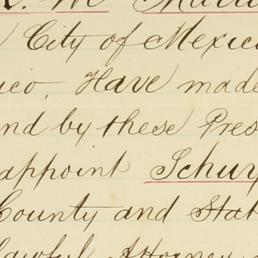 City of Mexico
ico, Have made
nd by these Pres
appoint Schuy
County and Stat
lawful Attorney